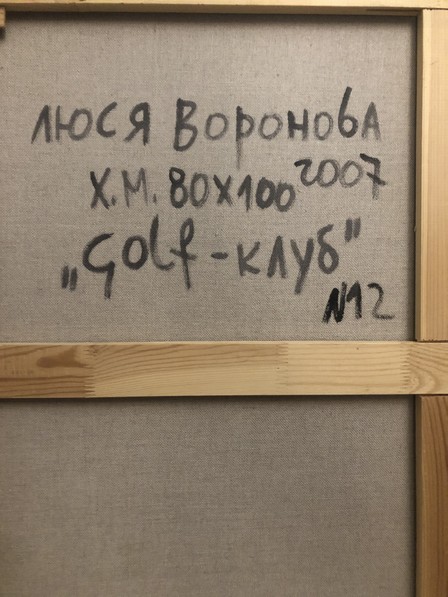 люся Воронова
Х.М. 80х100 2007
„Golf-клуб"
N12